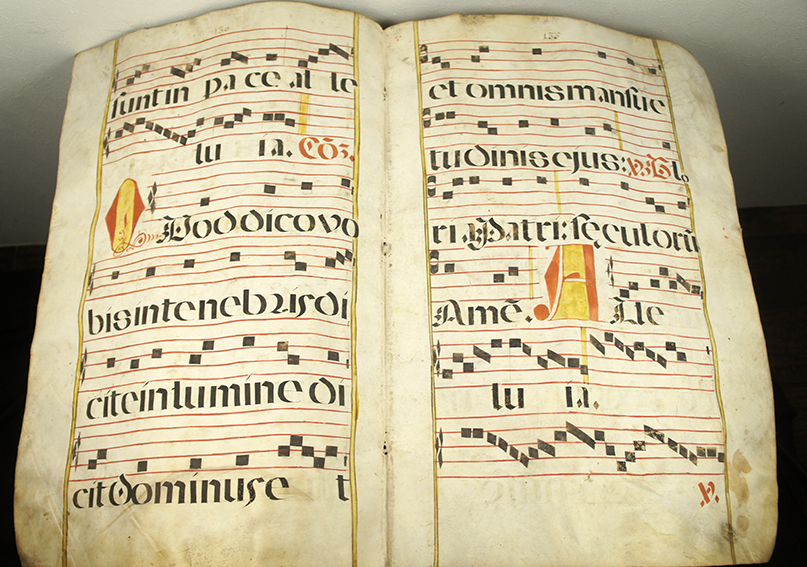 sunt in pa ce al le
lu ia. Cõ3.
QVod dico vo
bis in tenebris di
cite in lumine di
cit dominus e t
et omnis mansue
tudinis ejus: V. Glo
ri a Patri: sęculorũ
Amẽ. A Lle
lu ia.
V.